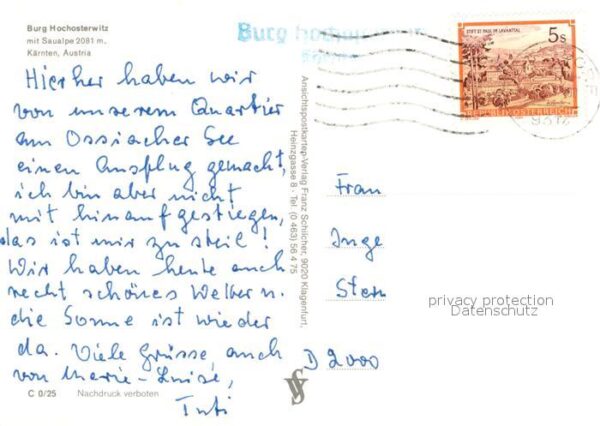 Burg Hochosterwitz
mit Saualpe 2081 m.
Kärnten, Austria
Hierher haben wir
von unserem Quartier
am Ossiacher See
einen Ausflug gemacht,
ich bin aber nicht
mit hinaufgestiegen,
das ist mir zu steil!
Wir haben heute auch
recht schönes Wetter u.
die Sonne ist wieder
da. Viele Grüsse, auch
von Marie-Luise,
Tuti
C 0/25 Nachdruck verboten
Ansichtspostkarten-Verlag Franz Schilcher, 9020 Klagenfurt,
Heinzgasse 8 · Tel. (0 463) 56 4 75
Burg Hochosterwitz
STIFT ST. PAUL IM LAVANTTAL
5s
REPUBLIK ÖSTERREICH
Frau
Inge
Sten
D 2000
privacy protection
Datenschutz